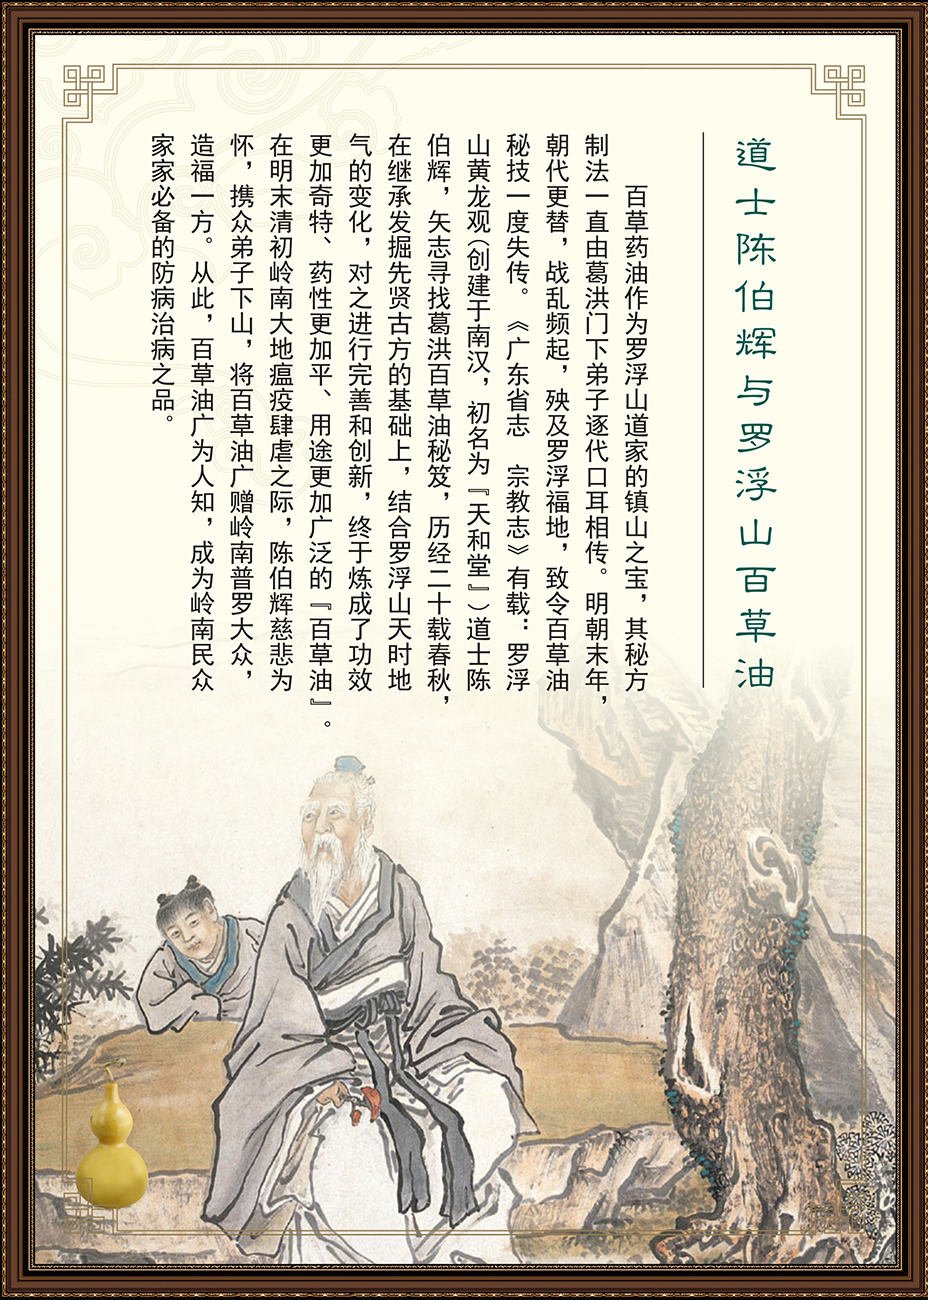 道士陈伯辉与罗浮山百草油
百草药油作为罗浮山道家的镇山之宝，其秘方
制法一直由葛洪门下弟子逐代口耳相传。明朝末年，
朝代更替，战乱频起，殃及罗浮福地，致令百草油
秘技一度失传。《广东省志 宗教志》有载：罗浮
山黄龙观（创建于南汉，初名为『天和堂』）道士陈
伯辉，矢志寻找葛洪百草油秘笈，历经二十载春秋，
在继承发掘先贤古方的基础上，结合罗浮山天时地
气的变化，对之进行完善和创新，终于炼成了功效
更加奇特、药性更加平、用途更加广泛的『百草油』。
在明末清初岭南大地瘟疫肆虐之际，陈伯辉慈悲为
怀，携众弟子下山，将百草油广赠岭南普罗大众，
造福一方。从此，百草油广为人知，成为岭南民众
家家必备的防病治病之品。